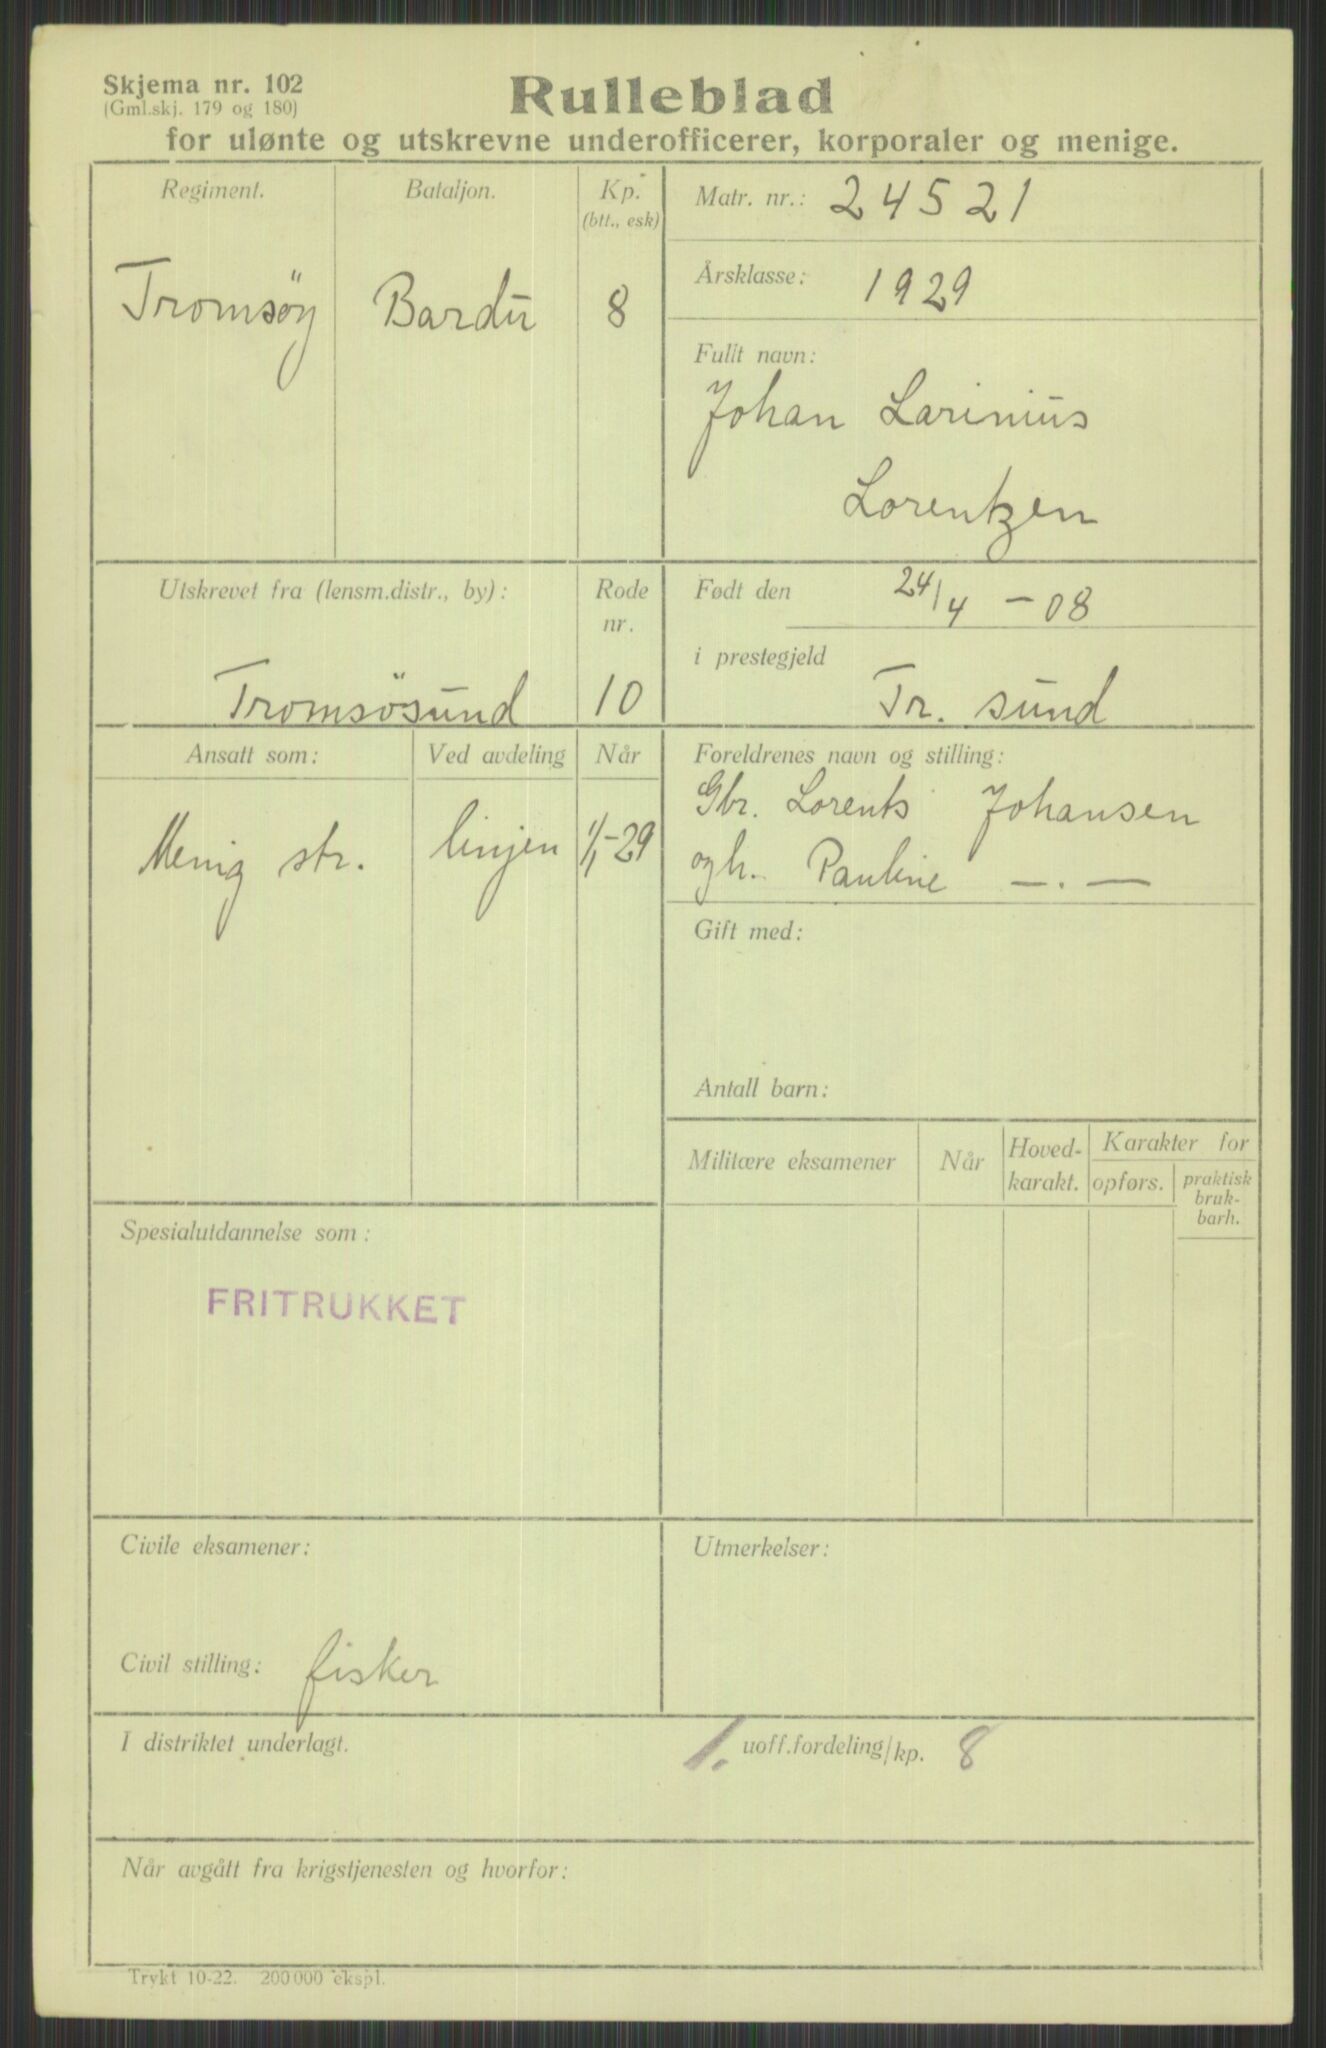 Skjema nr. 102
(Gml.skj. 179 og 180)
Rulleblad
for ulønte og utskrevne underofficerer, korporaler og menige.
Regiment.
Tromsöy
Bataljon.
Bardu
Kp.
(btt., esk)
8
Matr. nr.: 24521
Årsklasse: 1929
Fullt navn:
Johan Larinius
Lorentzen
Utskrevet fra (lensm.distr., by):
Tromsösund
Rode
nr.
10
Født den 24/4 – 08
i prestegjeld
Tr. sund
Ansatt som:
Menig str.
Ved avdeling
linjen
Når
1/1-29
Foreldrenes navn og stilling:
Gbr. Lorents Johansen
ogh. Pauline —.—
Gift med:
Antall barn:
Militære eksamener
Når
Hoved-
karakt.
Karakter for
opførs.
praktisk
bruk-
barh.
Spesialutdannelse som:
FRITRUKKET
Civile eksamener:
Civil stilling: fisker
Utmerkelser:
I distriktet underlagt.
1. uoff.fordeling/kp. 8
Når avgått fra krigstjenesten og hvorfor:
Trykt 10-22. 200000 ekspl.